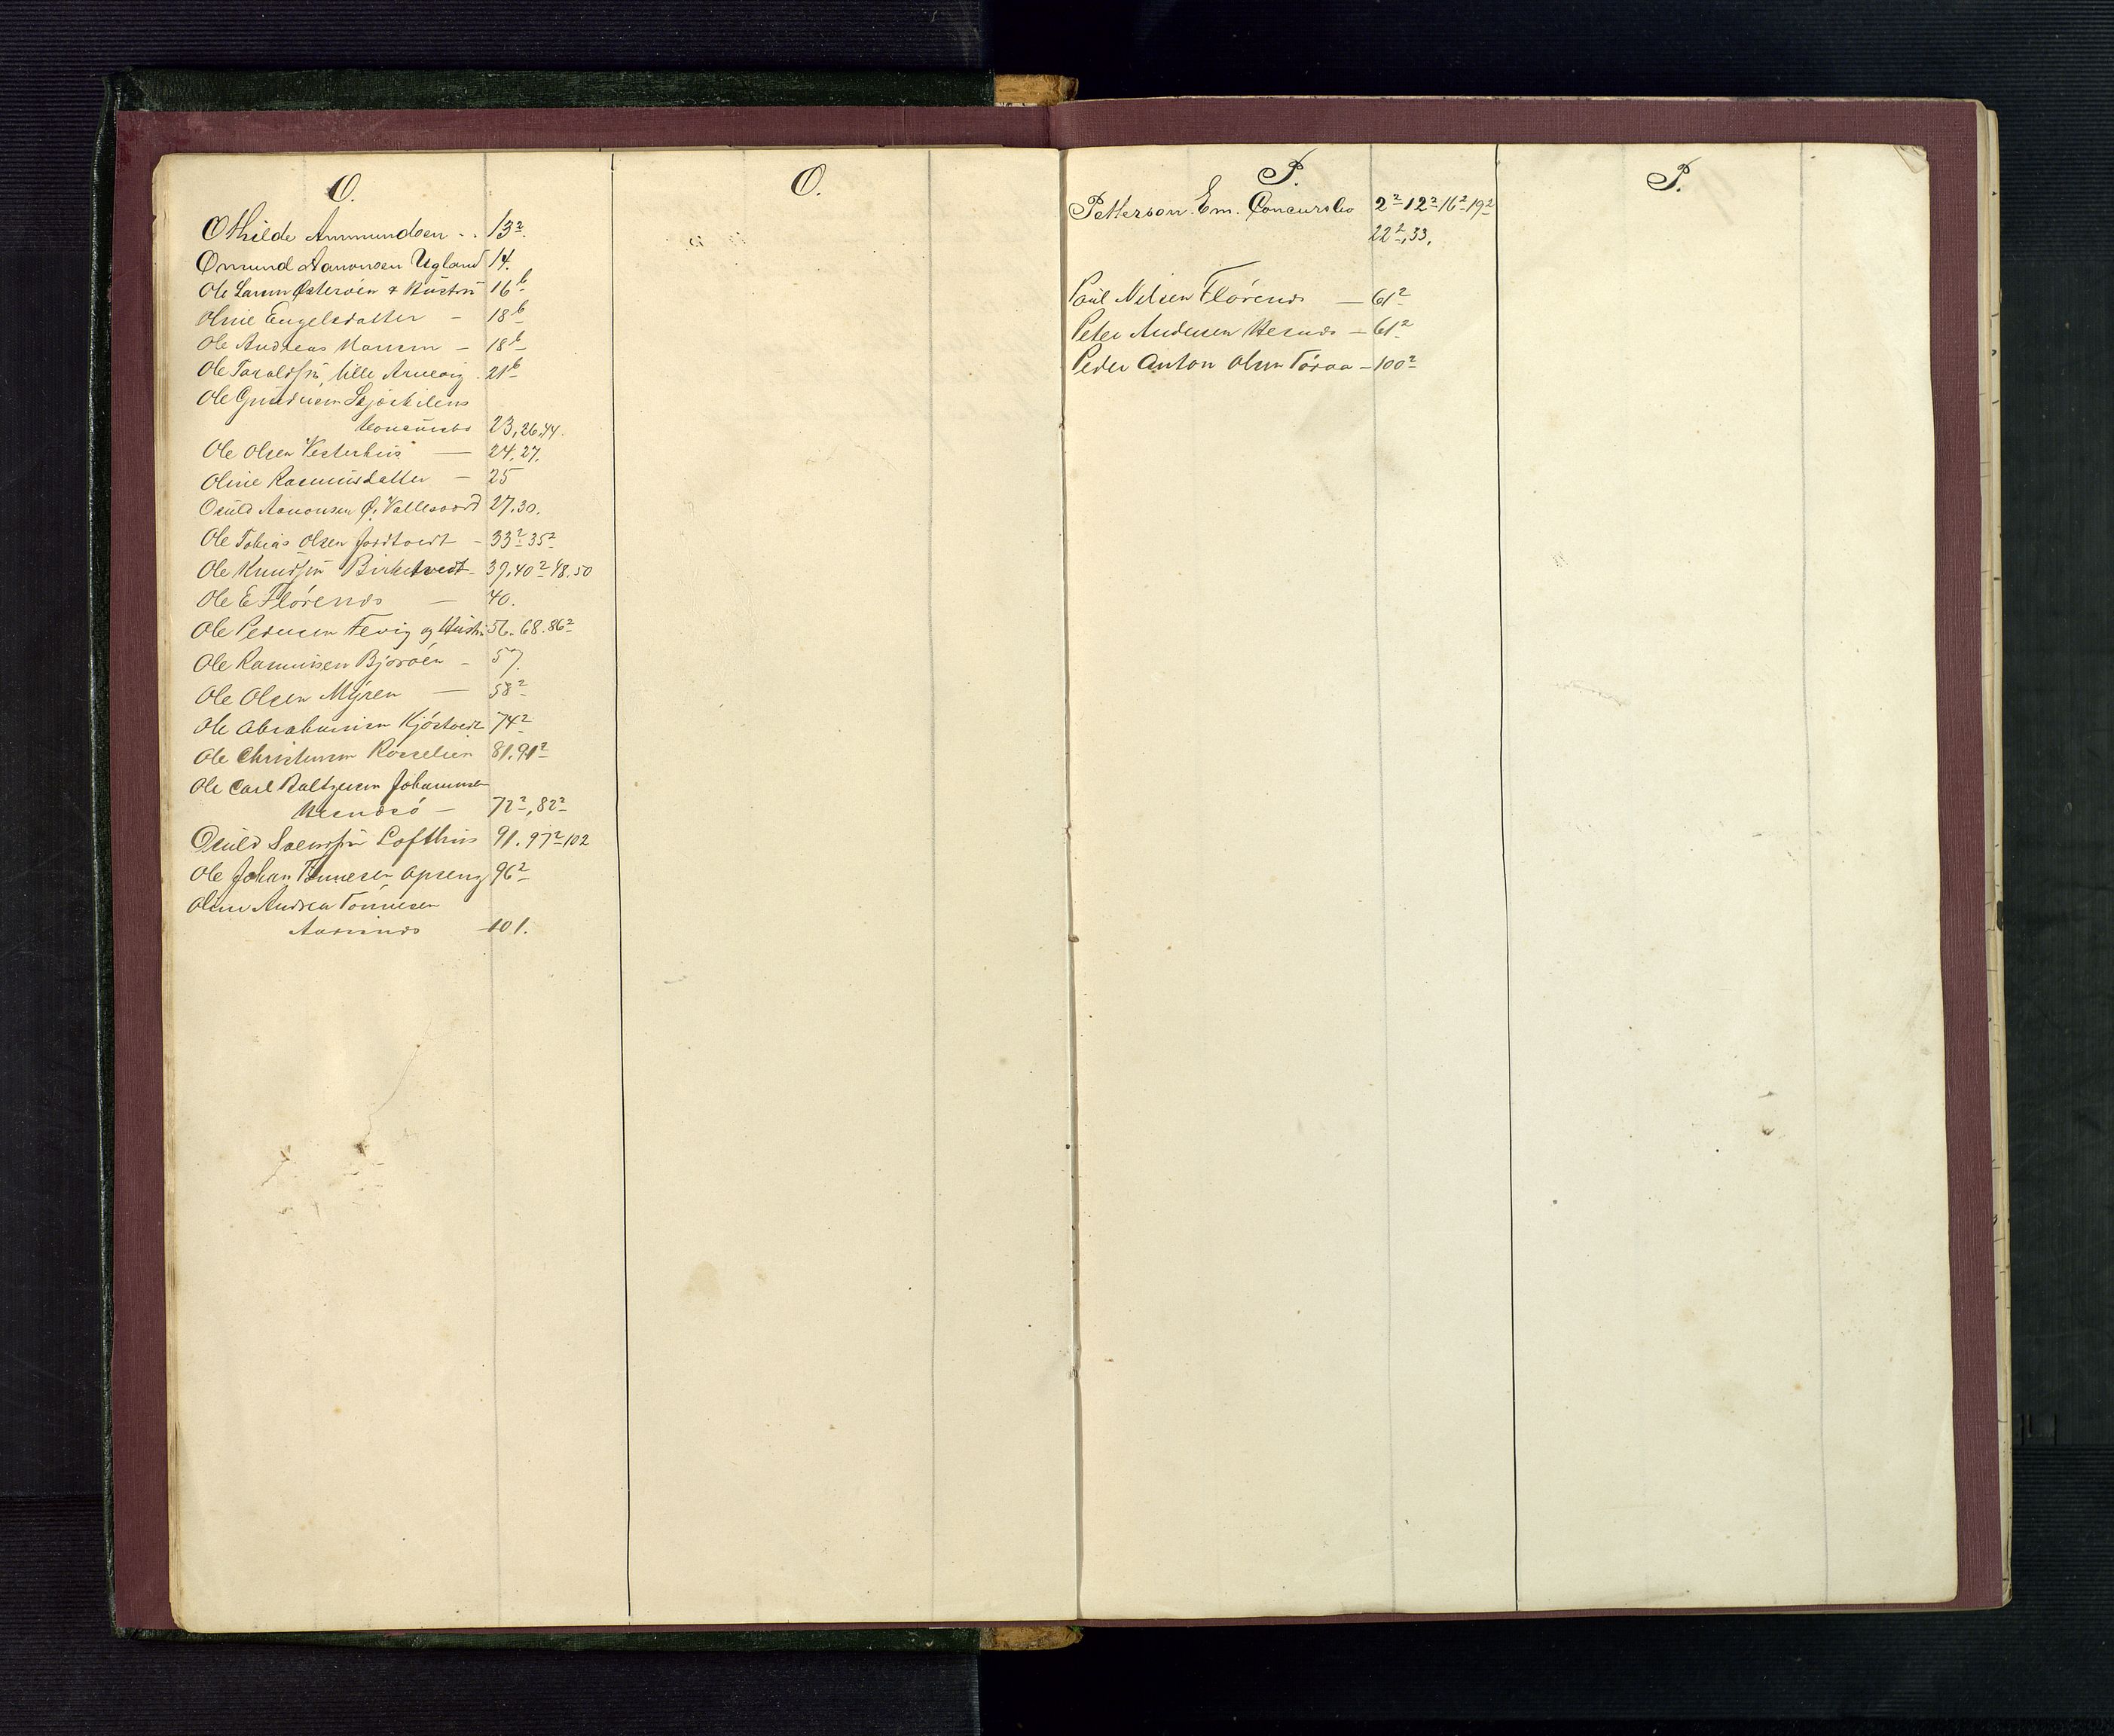 O.
Othilde Ammundsen - . 13²
Omund Aanonsen Ugland 14.
Ole Larsen Østerøen & Hustru 16ᵇ
Oline Engelsdatter - 18ᵇ
Ole Andreas Hansen - 18ᵇ
Ole Taraldsen, lille Arnevig. 21ᵇ
Ole Gundersen
Concursbo 23, 26, 44.
Ole Olsen Vesterhus — 24, 27,
Oline Rasmusdatter - 25
Osuld Aanonsen Ø. Vallesverd 27. 30.
Ole Tobias Olsen Jordtvedt - 33² 35²
Ole Knudsen Birketvedt - 37. 40² 48. 50
Ole E Flørenes — 40.
Ole Pedersen Fevig og Hustru 56. 68. 86²
Ole Rasmusen Bjorøen - 57.
Ole Olsen Myren — 58²
Ole Abrahamsen Kjøstvedt 74²
Ole Christensen Rosselien 81. 91²
Ole Carl Baltzersen Johannesen
Hesnesø — 72², 82²
Osuld Svendsen Lofthus 91. 97² 102
Ole Johan Tønnesen Opseng 96²
Oline Andrea Tønnesen
101.
O.
P.
Petterson Em. Concursbo 2² 12² 16² 19²
22², 33,
Poul Nilsen Flørenes — 61²
Peter Andersen Hesnes — 61²
Peder Anton Olsen Toraa — 100²
P.